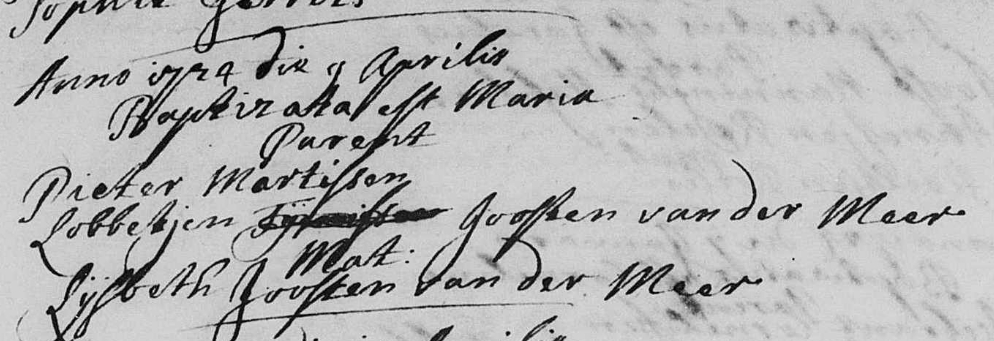 Sophie Gerrits
Anno 1724 die 9 Aprilis
Baptizata est Maria
Parent
Pieter Martissen
Lobbetjen Joosten van der Meer
Mat:
Lijsbeth Joosten van der Meer